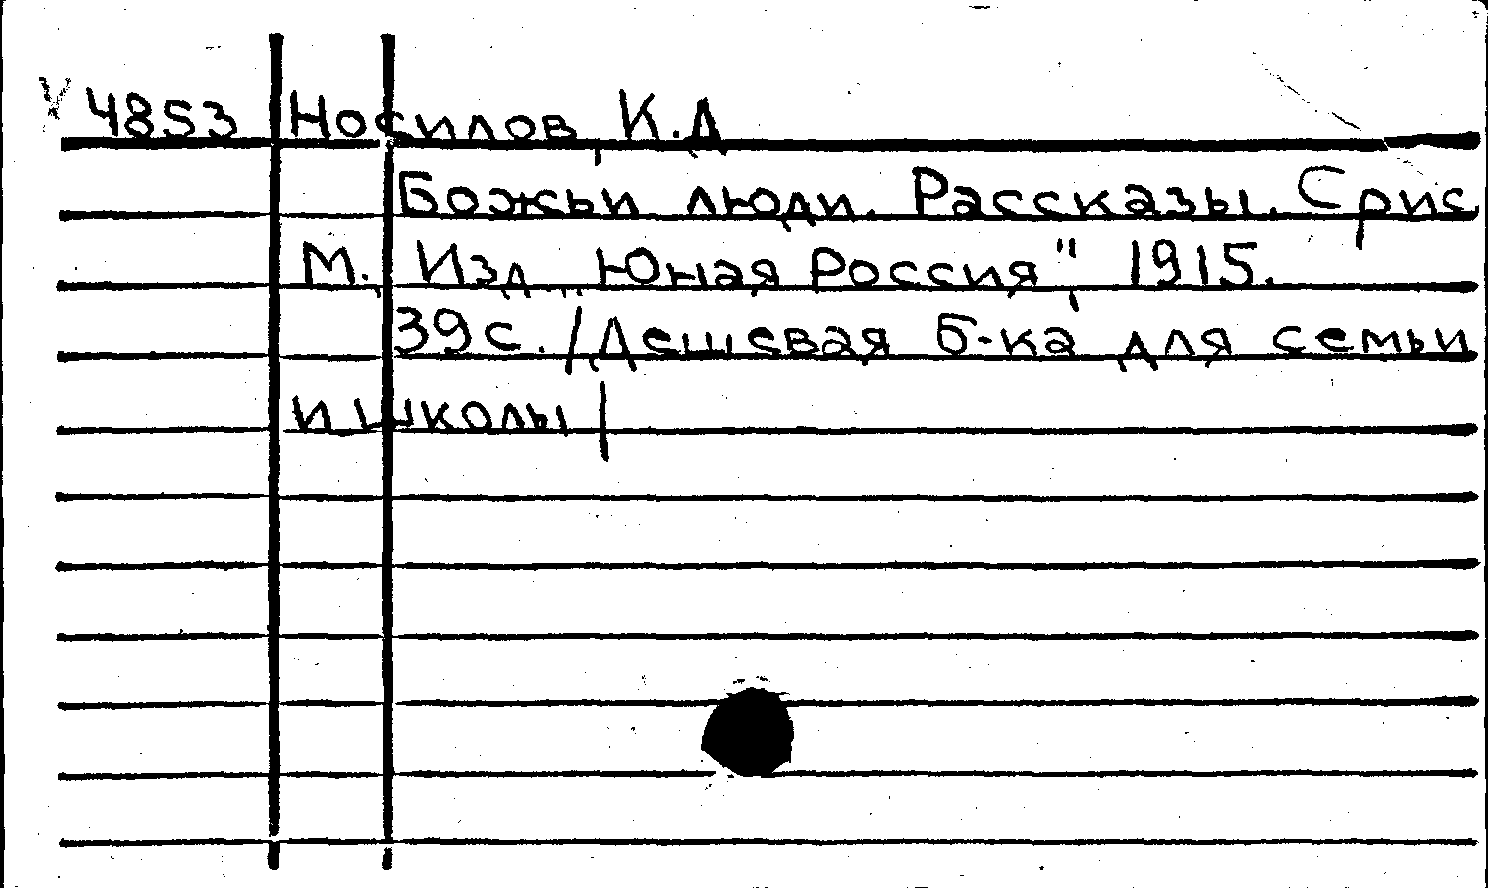 4853 Носилов, К.Д
Божьи люди. Рассказы. С рис
М., Изд. „Юная Россия", 1915.
39 с. /Дешевая б-ка для семьи
и школы/